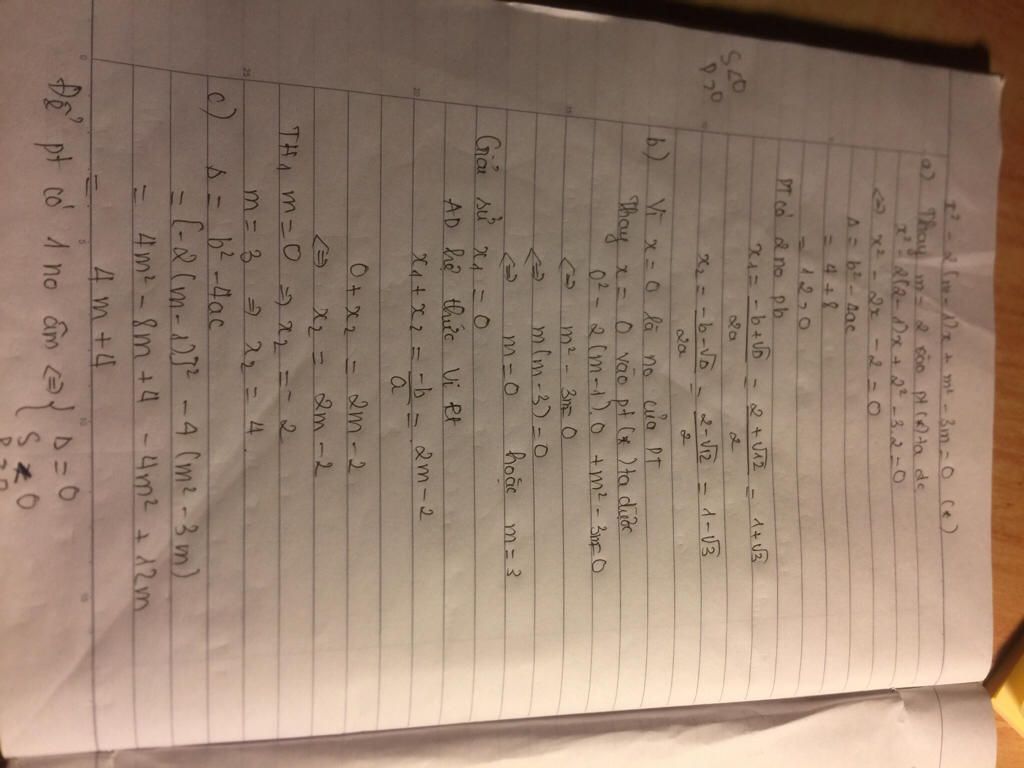 x² - 2(m-1)x + m² - 3m = 0 (*)
a) Thay m = 2 vào pt (*) ta đc
x² - 2(2-1)x + 2² - 3.2 = 0
<=> x² - 2x - 2 = 0
Δ = b² - 4ac
= 4 + 8
= 12 > 0
PT có 2 no pb
x₁ = (-b+√Δ)/2a = (2+√12)/2 = 1+√3
x₂ = (-b-√Δ)/2a = (2-√12)/2 = 1-√3
S<0
P>0
b) Vì x = 0 là no của PT
Thay x = 0 vào pt (*) ta được
0² - 2(m-1).0 + m² - 3m = 0
<=> m² - 3m = 0
<=> m(m-3) = 0
<=> m = 0 hoặc m = 3
Giả sử x₁ = 0
AD hệ thức Vi ét
x₁ + x₂ = -b/a = 2m - 2
0 + x₂ = 2m - 2
<=> x₂ = 2m - 2
TH₁ m = 0 => x₂ = -2
m = 3 => x₂ = 4
c) Δ = b² - 4ac
= [-2(m-1)]² - 4(m² - 3m)
= 4m² - 8m + 4 - 4m² + 12m
= 4m + 4
Để pt có 1 no âm <=> { Δ = 0
S 0